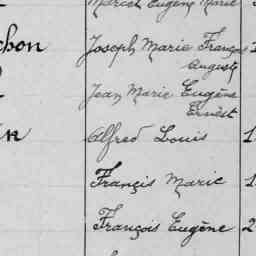 Marcel Eugène Marie
chon Joseph Marie François
Auguste
Jean Marie Eugène
Ernest
in Alfred Louis 1
Francis Marie 1
François Eugène 2